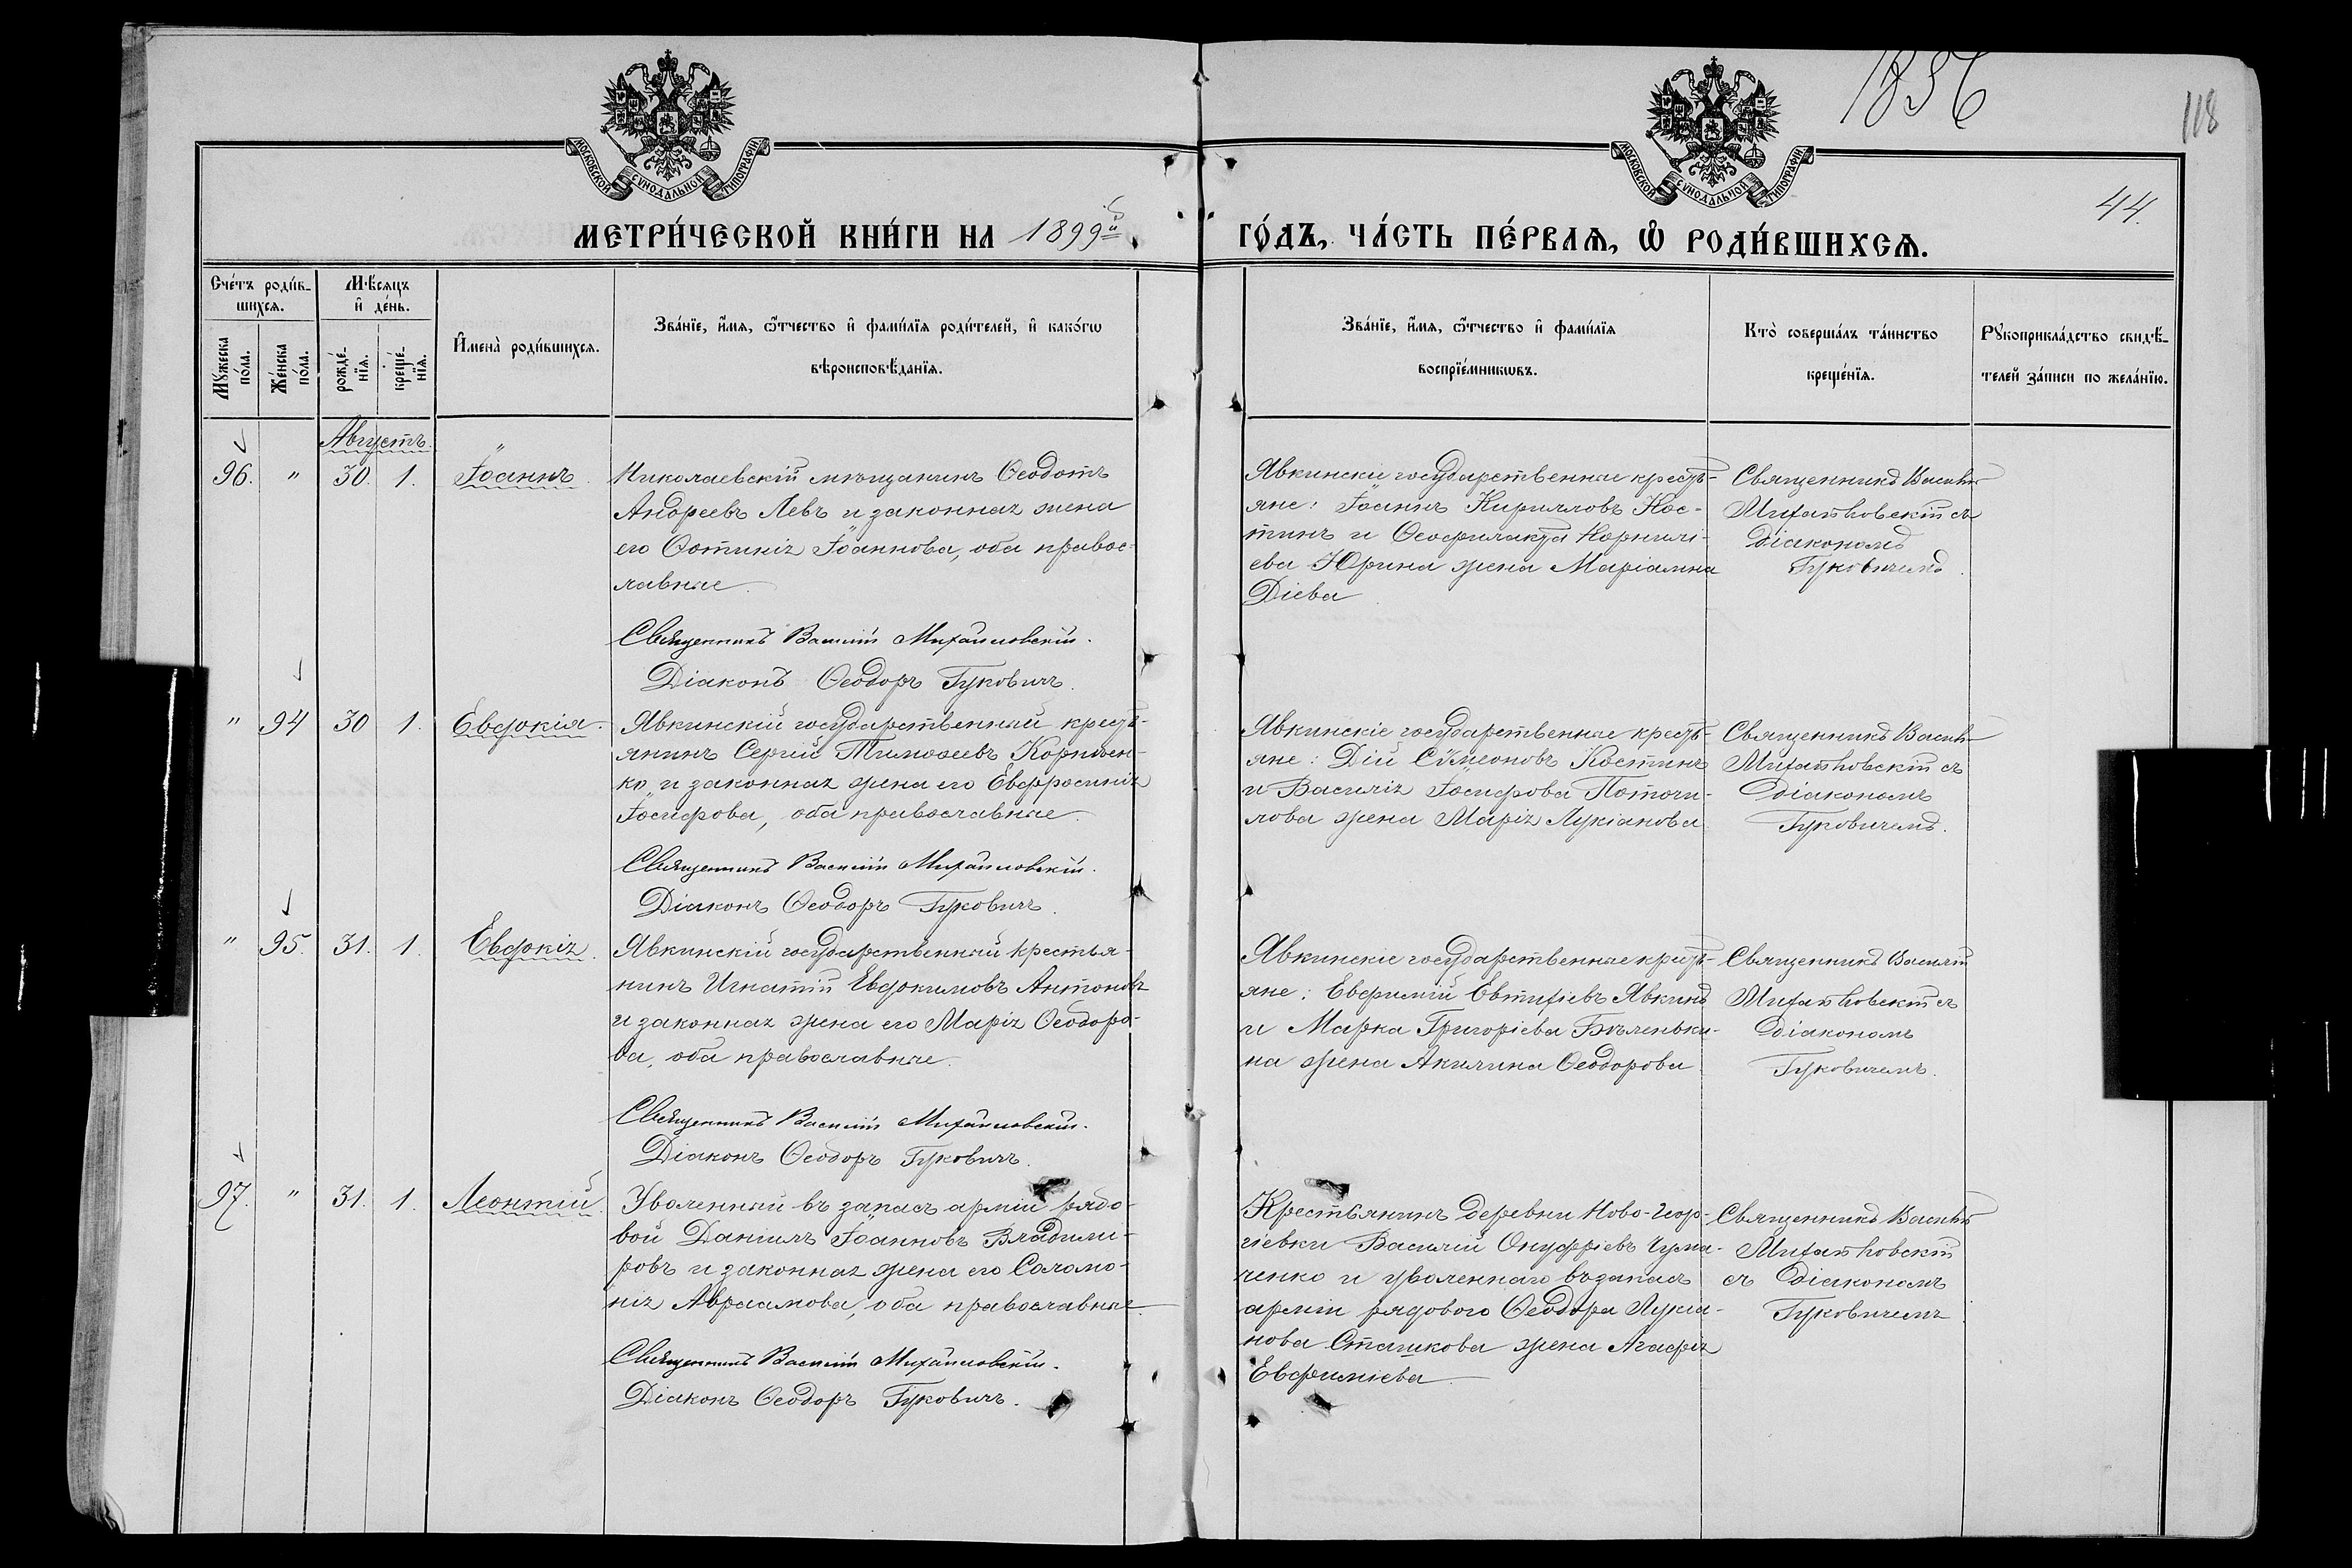 1856
118
44.
МОСКОВСКОЙ СѴНОДАЛЬНОЙ ТИПОГРАФІИ
МОСКОВСКОЙ СѴНОДАЛЬНОЙ ТИПОГРАФІИ
МЕТРИ́ЧЕСКОЙ КНИ́ГИ НА 1899й
ГО́ДЪ, ЧА́СТЬ ПЕ́РВАѦ, Ѽ РОДИ́ВШИХСѦ.
Сче́тъ роди́в-
шихся.
Мꙋ́жеска
по́ла.
Же́нска
по́ла.
Мѣ́сяцъ
и҆ де́нь.
рожде́-
нїя.
креще́-
нїя.
И҆мена̀ роди́вшихся.
Зва́нїе, и҆́мя, ѻ҆́тчество и҆ фами́лїя роди́телей, и҆ како́гѡ
вѣроисповѣ́данїя.
Зва́нїе, и҆́мя, ѻ҆́тчество и҆ фами́лїя
воспрїе́мникѡвъ.
Кто̀ соверша́лъ та́инство
креще́нїя.
Рꙋкоприкла́дство свидѣ́-
телей за́писи по жела́нїю.
Августъ.
96. " 30. 1. Іоаннъ.
Николаевскій мѣщанинъ Ѳеодотъ
Андреевъ Левъ и законная жена
его Фотинія Іоаннова, оба правос-
лавные
Священникъ Василій Михайловскій.
Діаконъ Ѳеодоръ Гуковичъ.
Явкинскіе государственные кресть-
яне: Іоаннъ Кирилловъ Кос-
тинъ и Ѳеофилакта Корнилі-
ева Юрина жена Маріамна
Діева
Священникъ Василій
Михайловскій съ
діакономъ
Гуковичемъ.
" 94 30 1. Евдокія.
Явкинскій государственный кресть-
янинъ Сергій Тимоѳеевъ Корніен-
ко и законная жена его Евфросинія
Іосифова, оба православные
Священникъ Василій Михайловскій.
Діаконъ Ѳеодоръ Гуковичъ.
Явкинскіе государственные кресть-
яне: Дій Сѵмеоновъ Костинъ
и Василія Іосифова Поточи-
лова жена Марія Лукіанова
Священникъ Василій
Михайловскій съ
діакономъ
Гуковичемъ.
" 95. 31. 1. Евдокія.
Явкинскій государственный крестья-
нинъ Игнатій Евдокимовъ Антоновъ
и законная жена его Марія Ѳеодоро-
ва, оба православные.
Священникъ Василій Михайловскій.
Діаконъ Ѳеодоръ Гуковичъ.
Явкинскіе государственные кресть-
яне: Евфимій Евтихіевъ Явкинъ
и Марка Григоріева Бѣленьки-
на жена Акилина Ѳеодорова
Священникъ Василій
Михайловскій съ
діакономъ
Гуковичемъ.
97. " 31. 1. Леонтій.
Уволенный въ запасъ арміи рядо-
вой Даніилъ Іоанновъ Владими-
ровъ и законная жена его Соломо-
нія Авраамова, оба православные.
Священникъ Василій Михайловскій.
Діаконъ Ѳеодоръ Гуковичъ.
Крестьянинъ деревни Ново-Геор-
гіевки Василій Онуфріевъ Чума-
ченко и уволеннаго въ запасъ
арміи рядового Ѳеодора Лукіа-
нова Сташкова жена Агафія
Евфиміева
Священникъ Василій
Михайловскій
съ діакономъ
Гуковичемъ